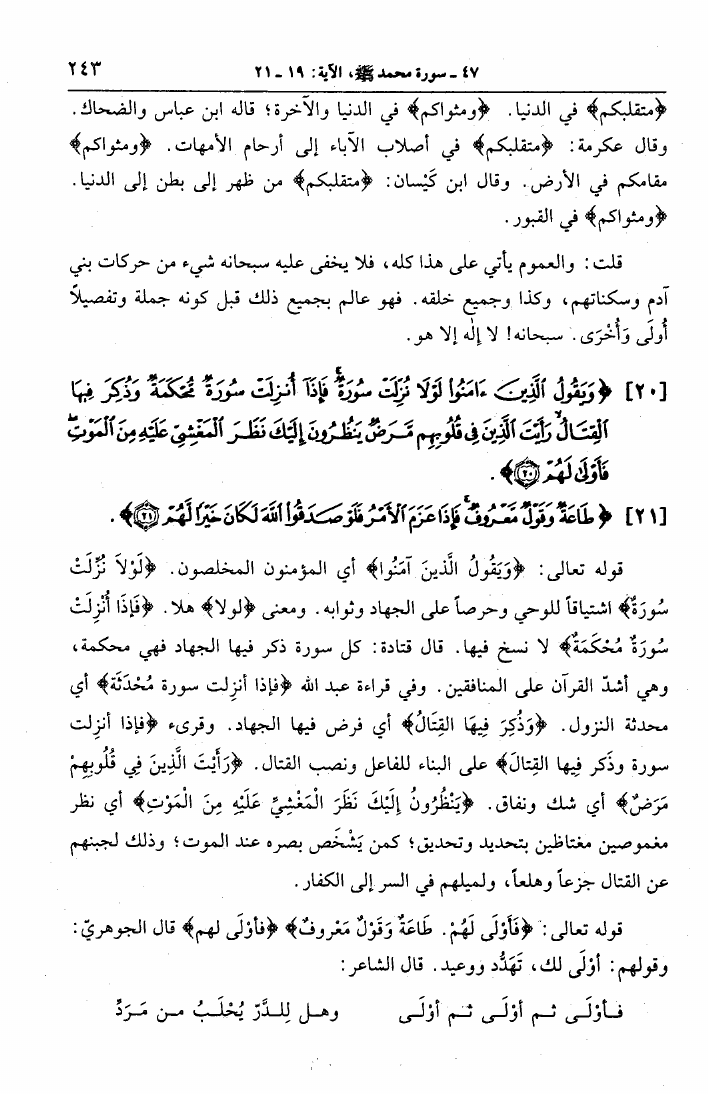 ٤٧ ـ سورة محمد ﷺ، الآية: ١٩ ـ ٢١ ٢٤٣
﴿متقلبكم﴾ في الدنيا. ﴿ومثواكم﴾ في الدنيا والآخرة؛ قاله ابن عباس والضحاك.
وقال عكرمة: ﴿متقلبكم﴾ في أصلاب الآباء إلى أرحام الأمهات. ﴿ومثواكم﴾
مقامكم في الأرض. وقال ابن كَيْسان: ﴿متقلبكم﴾ من ظهر إلى بطن إلى الدنيا.
﴿ومثواكم﴾ في القبور.
قلت: والعموم يأتي على هذا كله، فلا يخفى عليه سبحانه شيء من حركات بني
آدم وسكناتهم، وكذا وجميع خلقه. فهو عالم بجميع ذلك قبل كونه جملة وتفصيلاً
أُولَى وَأُخْرَى. سبحانه! لا إلٰه إلا هو.
[٢٠] ﴿وَيَقُولُ ٱلَّذِينَ ءَامَنُوا۟ لَوْلَا نُزِّلَتْ سُورَةٌ ۖ فَإِذَآ أُنزِلَتْ سُورَةٌ مُّحْكَمَةٌ وَذُكِرَ فِيهَا
ٱلْقِتَالُ ۙ رَأَيْتَ ٱلَّذِينَ فِى قُلُوبِهِم مَّرَضٌ يَنظُرُونَ إِلَيْكَ نَظَرَ ٱلْمَغْشِىِّ عَلَيْهِ مِنَ ٱلْمَوْتِ ۖ
فَأَوْلَىٰ لَهُمْ ۝٢٠﴾.
[٢١] ﴿طَاعَةٌ وَقَوْلٌ مَّعْرُوفٌ ۚ فَإِذَا عَزَمَ ٱلْأَمْرُ فَلَوْ صَدَقُوا۟ ٱللَّهَ لَكَانَ خَيْرًا لَّهُمْ ۝٢١﴾.
قوله تعالى: ﴿وَيَقُولُ الَّذينَ آمَنُوا﴾ أي المؤمنون المخلصون. ﴿لَوْلاَ نُزِّلَتْ
سُورَةٌ﴾ اشتياقاً للوحي وحرصاً على الجهاد وثوابه. ومعنى ﴿لولا﴾ هلا. ﴿فَإِذَا أُنْزِلَتْ
سُورَةٌ مُحْكَمَةٌ﴾ لا نسخ فيها. قال قتادة: كل سورة ذكر فيها الجهاد فهي محكمة،
وهي أشدّ القرآن على المنافقين. وفي قراءة عبد الله ﴿فإذا أنزلت سورة مُحْدَثَة﴾ أي
محدثة النزول. ﴿وَذُكِرَ فِيهَا القِتَالُ﴾ أي فرض فيها الجهاد. وقرىء ﴿فإذا أنزلت
سورة وذَكر فيها القِتالَ﴾ على البناء للفاعل ونصب القتال. ﴿رَأَيْتَ الَّذِينَ فِي قُلُوبِهِمْ
مَرَضٌ﴾ أي شك ونفاق. ﴿يَنْظُرُونُ إِلَيْكَ نَظَرَ الْمَغْشِيِّ عَلَيْهِ مِنَ الْمَوْتِ﴾ أي نظر
مغموصين مغتاظين بتحديد وتحديق؛ كمن يَشْخَص بصره عند الموت؛ وذلك لجبنهم
عن القتال جزعاً وهلعاً، ولميلهم في السر إلى الكفار.
قوله تعالى: ﴿فَأَوْلَى لَهُمْ. طَاعَةٌ وَقَوْلٌ مَعْروفٌ﴾ ﴿فأوْلَى لهم﴾ قال الجوهريّ:
وقولهم: أوْلَى لك، تَهَدُّد ووعيد. قال الشاعر:
فـأوْلَـى ثـم أوْلَـى ثـم أوْلَـى وهـل لِلـدَّرّ يُحْلَـبُ مـن مَـرَدِّ